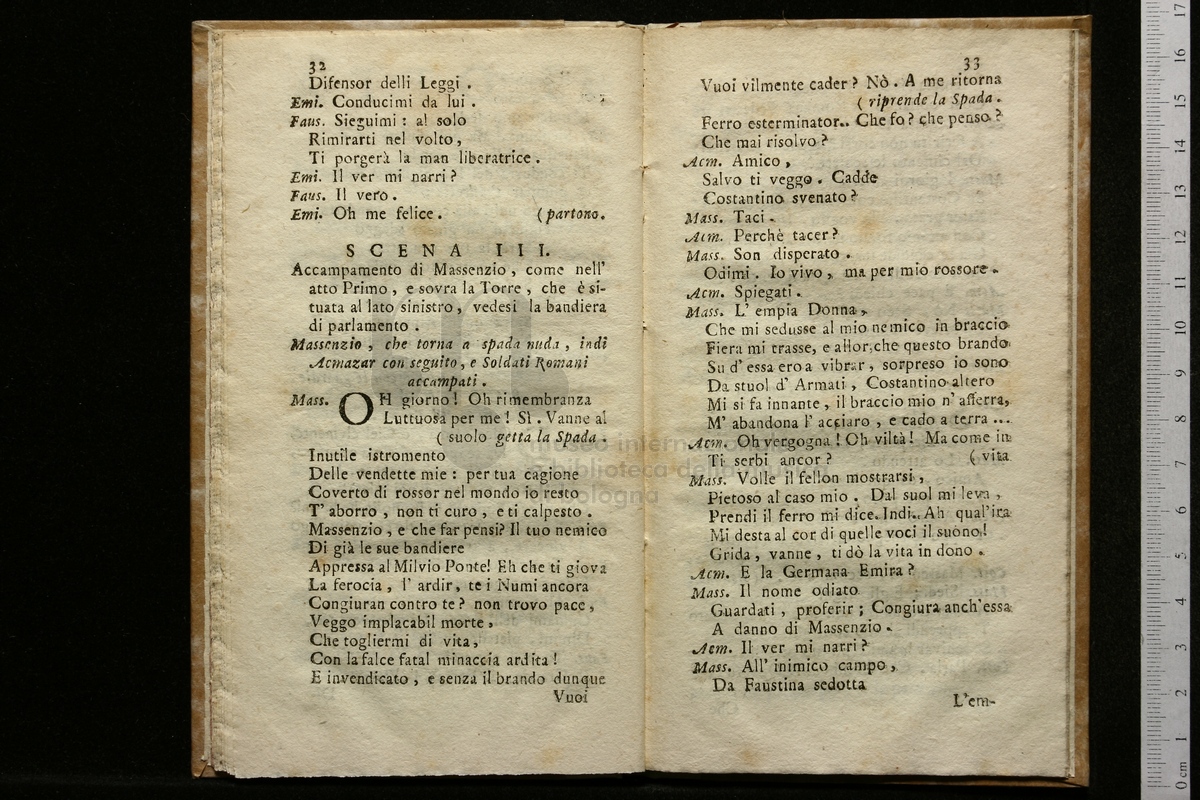 32
Difensor delli Leggi .
Emi. Conducimi da lui .
Faus. Sieguimi : al solo
Rimirarti nel volto ,
Ti porgerà la man liberatrice .
Emi. Il ver mi narri ?
Faus. Il vero .
Emi. Oh me felice . ( partono.
SCENA III.
Accampamento di Massenzio , come nell'
atto Primo , e sovra la Torre , che è si-
tuata al lato sinistro , vedesi la bandiera
di parlamento .
Massenzio , che torna a spada nuda , indi
Acmazar con seguito , e Soldati Romani
accampati .
Mass. OH giorno ! Oh rimembranza
Luttuosa per me ! Sì . Vanne al
( suolo getta la Spada .
Inutile istromento
Delle vendette mie : per tua cagione
Coverto di rossor nel mondo io resto
T' aborro , non ti curo , e ti calpesto .
Massenzio , e che far pensi? Il tuo nemico
Di già le sue bandiere
Appressa al Milvio Ponte! Eh che ti giova
La ferocia , l' ardir , te i Numi ancora
Congiuran contro te ? non trovo pace ,
Veggo implacabil morte ,
Che togliermi di vita ,
Con la falce fatal minaccia ardita !
E invendicato , e senza il brando dunque
Vuoi
33
Vuoi vilmente cader ? Nò . A me ritorna
( riprende la Spada .
Ferro esterminator.. Che fo ? che penso ?
Che mai risolvo ?
Acm. Amico ,
Salvo ti veggo . Cadde
Costantino svenato ?
Mass. Taci .
Acm. Perchè tacer ?
Mass. Son disperato .
Odimi . Io vivo , ma per mio rossore .
Acm. Spiegati .
Mass. L' empia Donna ,
Che mi sedusse al mio nemico in braccio
Fiera mi trasse, e allor,che questo brando
Su d' essa ero a vibrar , sorpreso io sono
Da stuol d' Armati , Costantino altero
Mi si fa innante , il braccio mio n' afferra,
M' abandona l' acciaro , e cado a terra ...
Acm. Oh vergogna ! Oh viltà ! Ma come in
Ti serbi ancor ? ( vita
Mass. Volle il fellon mostrarsi ,
Pietoso al caso mio . Dal suol mi leva ,
Prendi il ferro mi dice. Indi.. Ah qual'ira
Mi desta al cor di quelle voci il suono!
Grida , vanne , ti dò la vita in dono .
Acm. E la Germana Emira ?
Mass. Il nome odiato
Guardati , proferir ; Congiura anch'essa
A danno di Massenzio .
Acm. Il ver mi narri ?
Mass. All' inimico campo ,
Da Faustina sedotta
L'em-